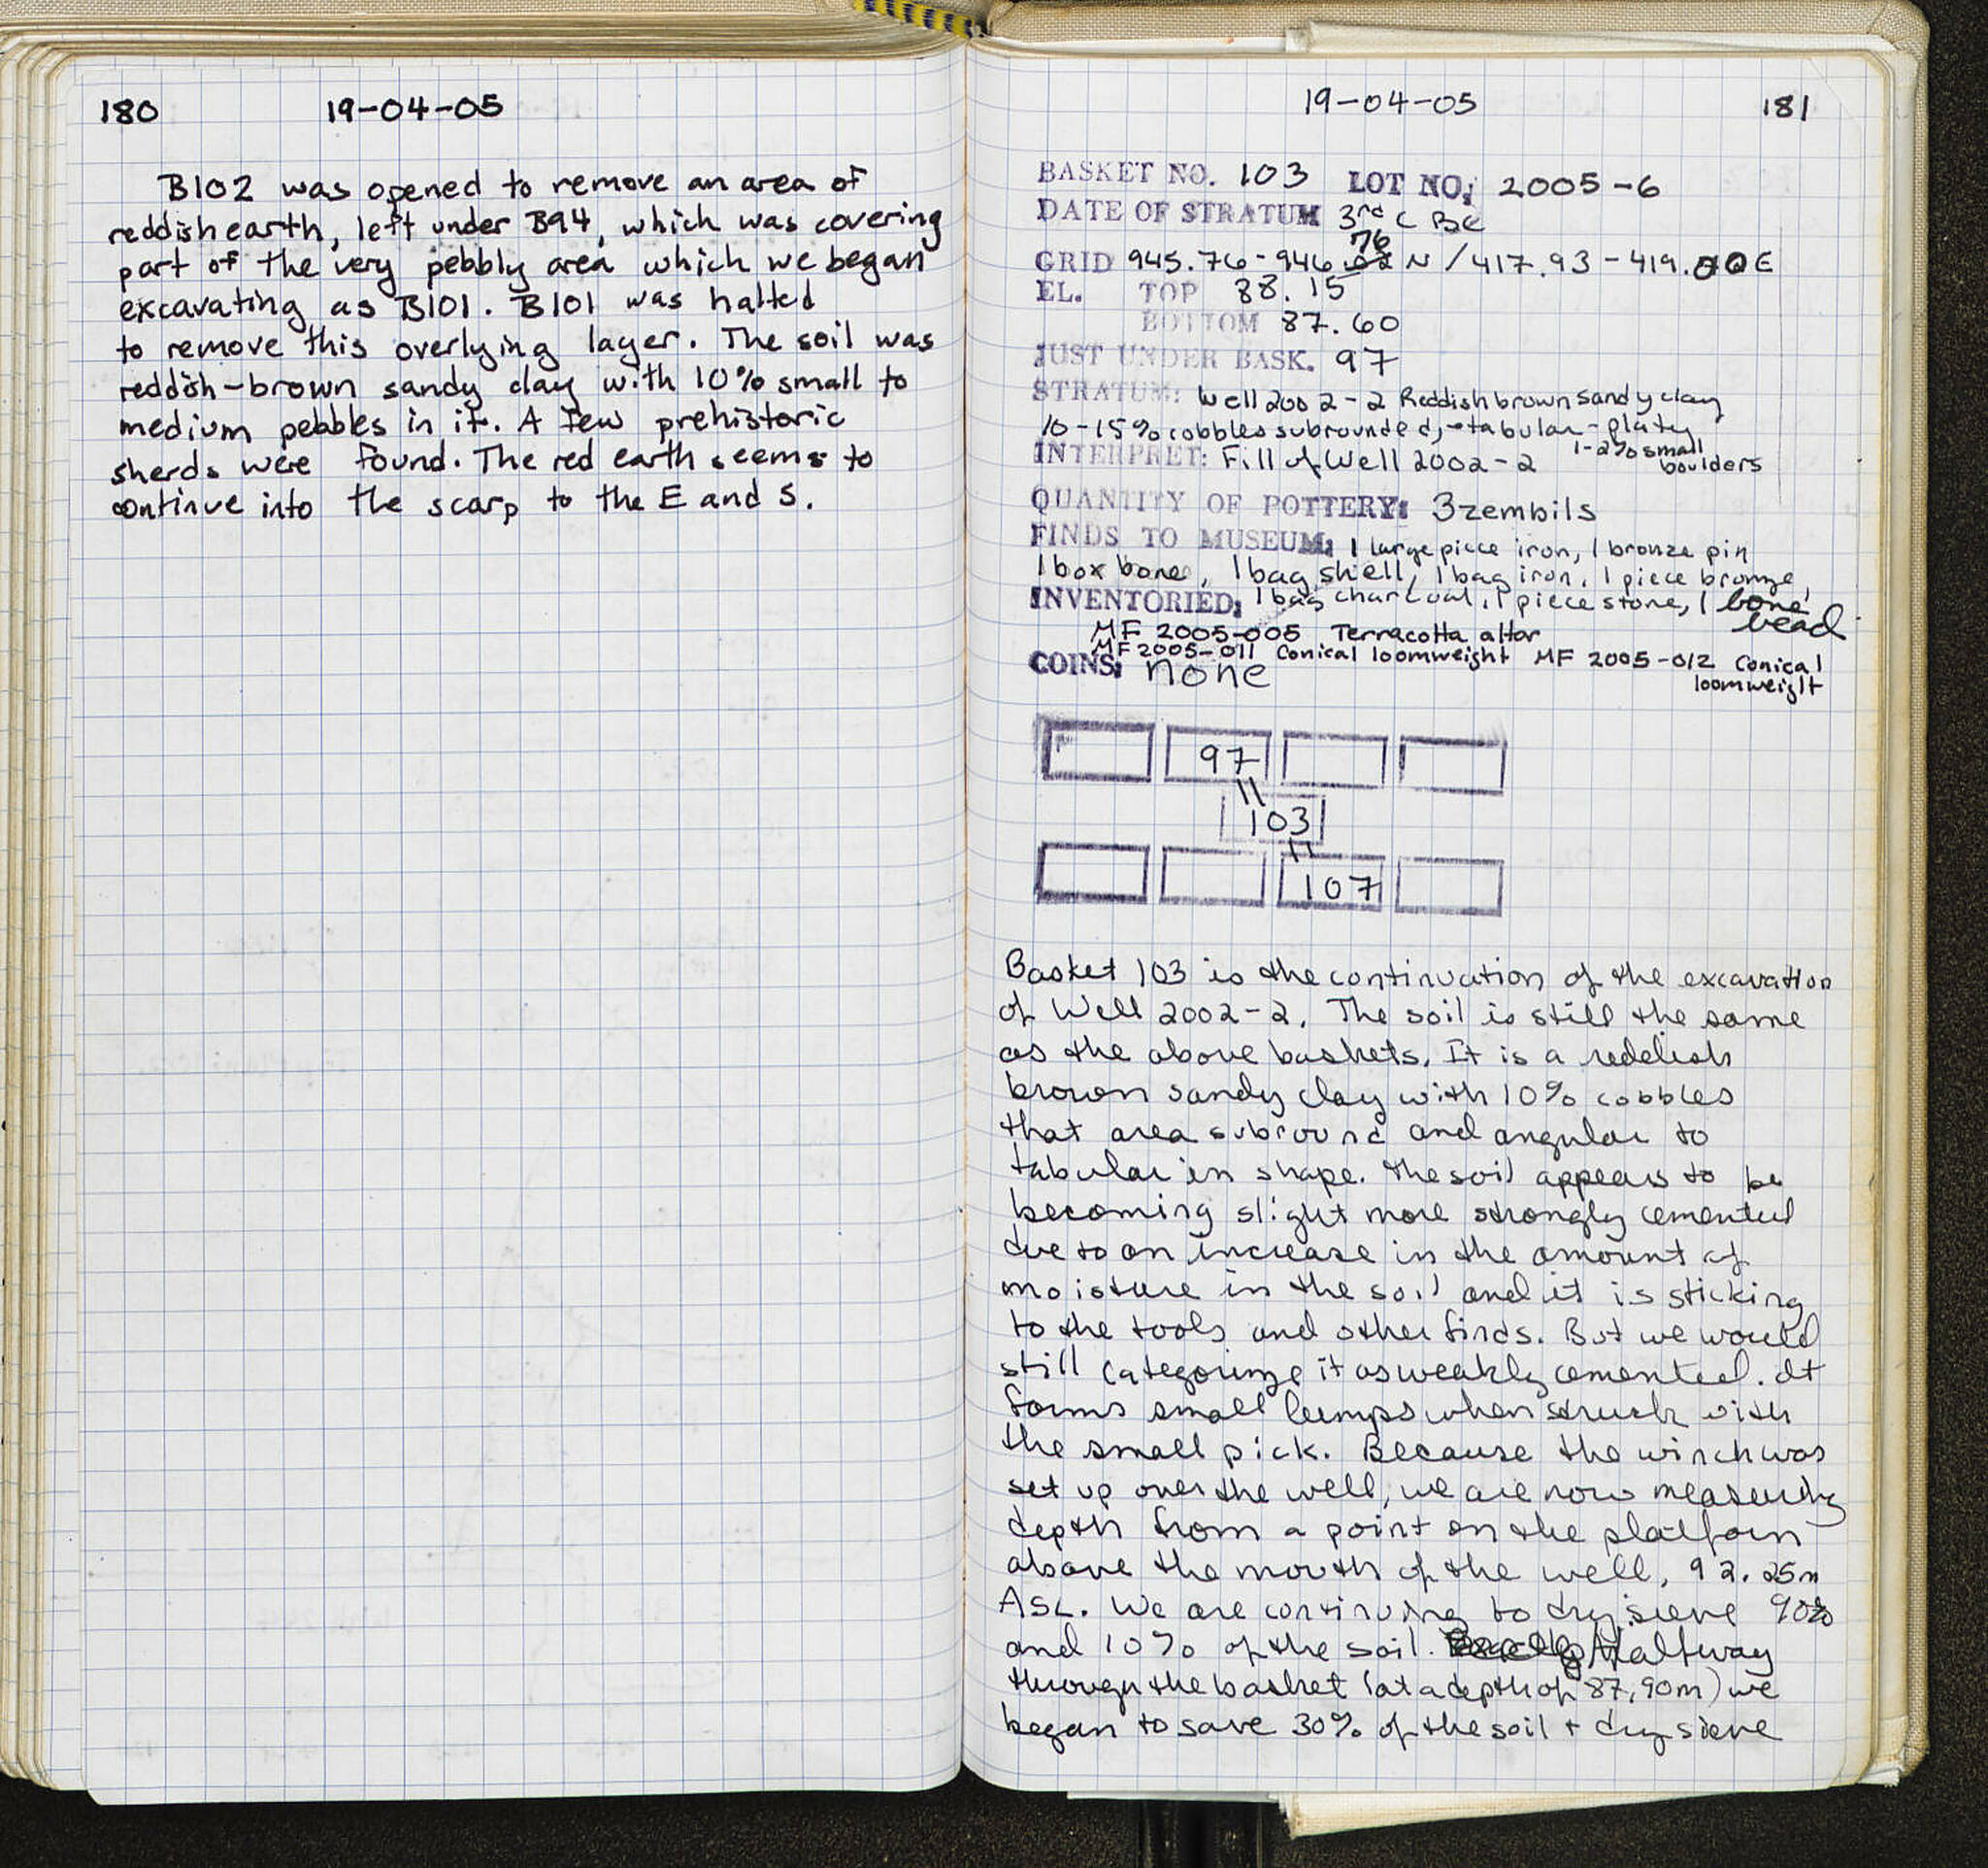 180 19-04-05
B102 was opened to remove an area of
reddish earth, left under B94, which was covering
part of the very pebbly area which we began
excavating as B101. B101 was halted
to remove this overlying layer. The soil was
reddish-brown sandy clay with 10% small to
medium pebbles in it. A few prehistoric
sherds were found. The red earth seems to
continue into the scarp to the E and S.
19-04-05 181
BASKET NO. 103 LOT NO: 2005-6
DATE OF STRATUM 3rd C BC
76
GRID 945.76-946 N / 417.93-419.00E
EL. TOP 88.15
BOTTOM 87.60
JUST UNDER BASK. 97
STRATUM: Well 2002-2 Reddish brown sandy clay
10-15% cobbles subrounded, tabular-platy
1-2% small boulders
INTERPRET: Fill of Well 2002-2
QUANTITY OF POTTERY: 3 zembils
FINDS TO MUSEUM: 1 large piece iron, 1 bronze pin
1 box bone, 1 bag shell, 1 bag iron, 1 piece bronze,
1 bag charcoal, 1 piece stone, 1 bone bead
INVENTORIED:
MF 2005-005 Terracotta altar
MF 2005-011 Conical loomweight MF 2005-012 Conical
loomweight
COINS: none
97
103
107
Basket 103 is the continuation of the excavation
of Well 2002-2. The soil is still the same
as the above baskets. It is a reddish
brown sandy clay with 10% cobbles
that area subround and angular to
tabular in shape. The soil appears to be
becoming slight more strongly cemented
due to an increase in the amount of
moisture in the soil and it is sticking
to the tools and other finds. But we would
still categorize it as weakly cemented. It
forms small lumps when struck with
the small pick. Because the winch was
set up over the well, we are now measuring
depth from a point on the platform
above the mouth of the well, 92.25m
ASL. We are continuing to dry sieve 90%
and 10% of the soil. Halfway
through the basket (at a depth of 87,90m) we
began to save 30% of the soil + dry sieve